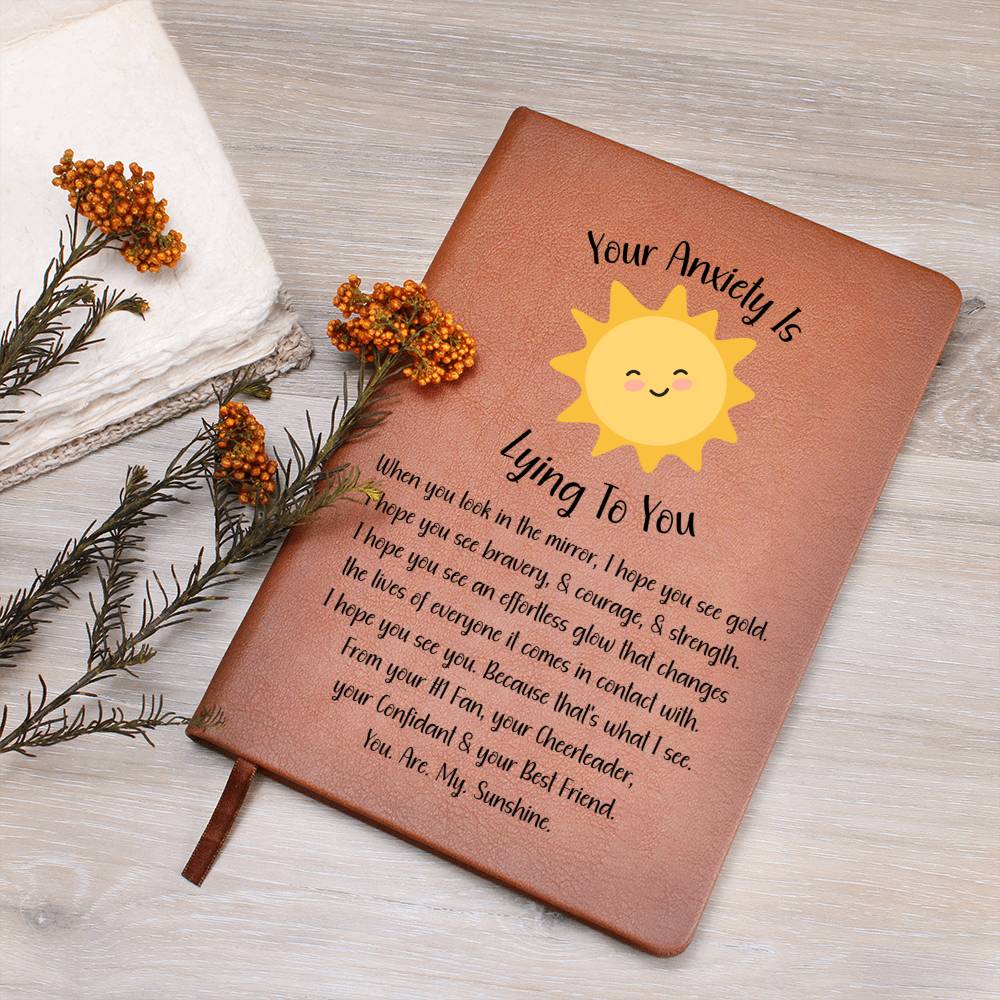 Your Anxiety Is
Lying To You
When you look in the mirror, I hope you see gold.
I hope you see bravery, & courage, & strength.
I hope you see an effortless glow that changes
the lives of everyone it comes in contact with.
I hope you see you. Because that's what I see.
From your #1 Fan, your Cheerleader,
your Confidant & your Best Friend.
You. Are. My. Sunshine.